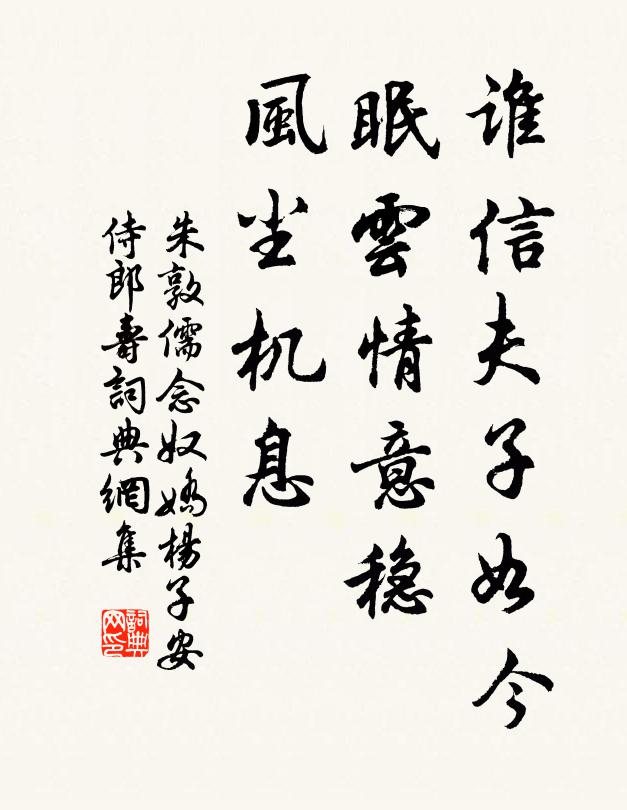 谁信夫子如今
眠雲情意穏
風尘机息
朱敦儒念奴嬌楊子安
侍郎壽詞典網集
詞典
网印